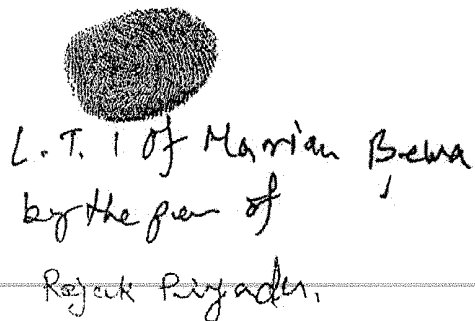 L.T.I of Marian Bewa
by the pen of
Rajak Piyada.